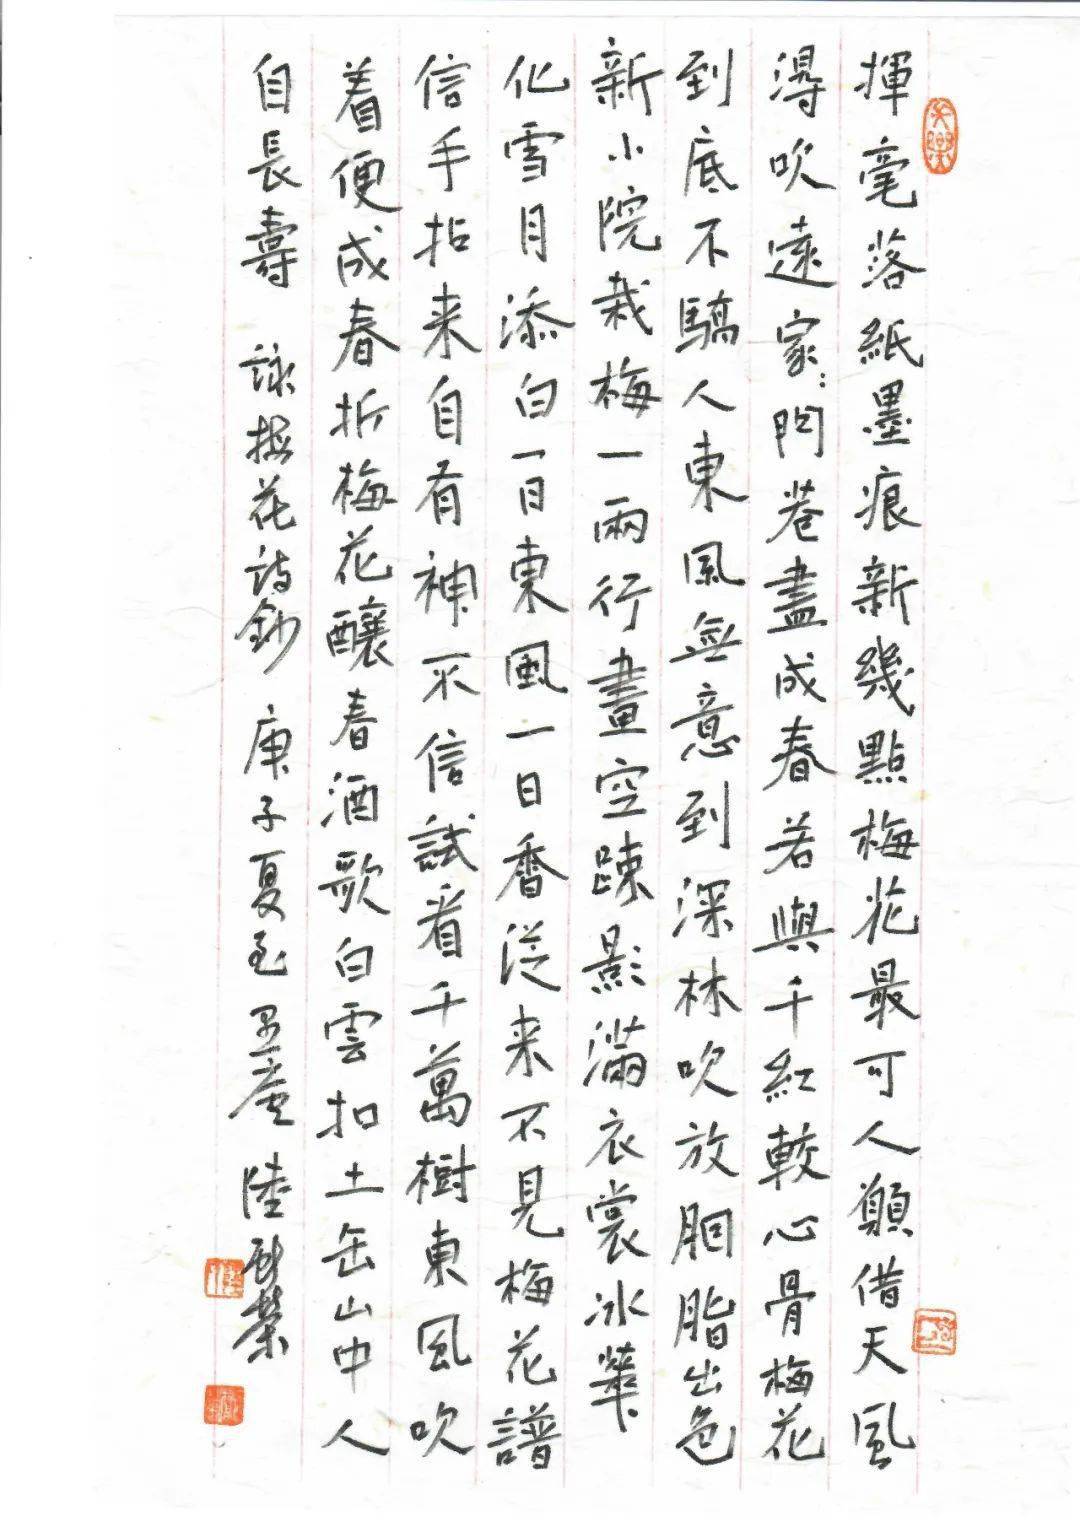 揮毫落紙墨痕新幾點梅花最可人願借天風
淂吹遠家:門巷盡成春若與千紅較心骨梅花
到底不驕人東風無意到深林吹放胭脂出色
新小院栽梅一兩行畫空疎影滿衣裳冰華
化雪月添白一日東風一日香從来不見梅花譜
信手拈来自有神不信試看千萬樹東風吹
着便成春折梅花釀春酒歌白雲扣土缶山中人
自長壽 詠梅花詩鈔 庚子夏至 廬 陸啟榮